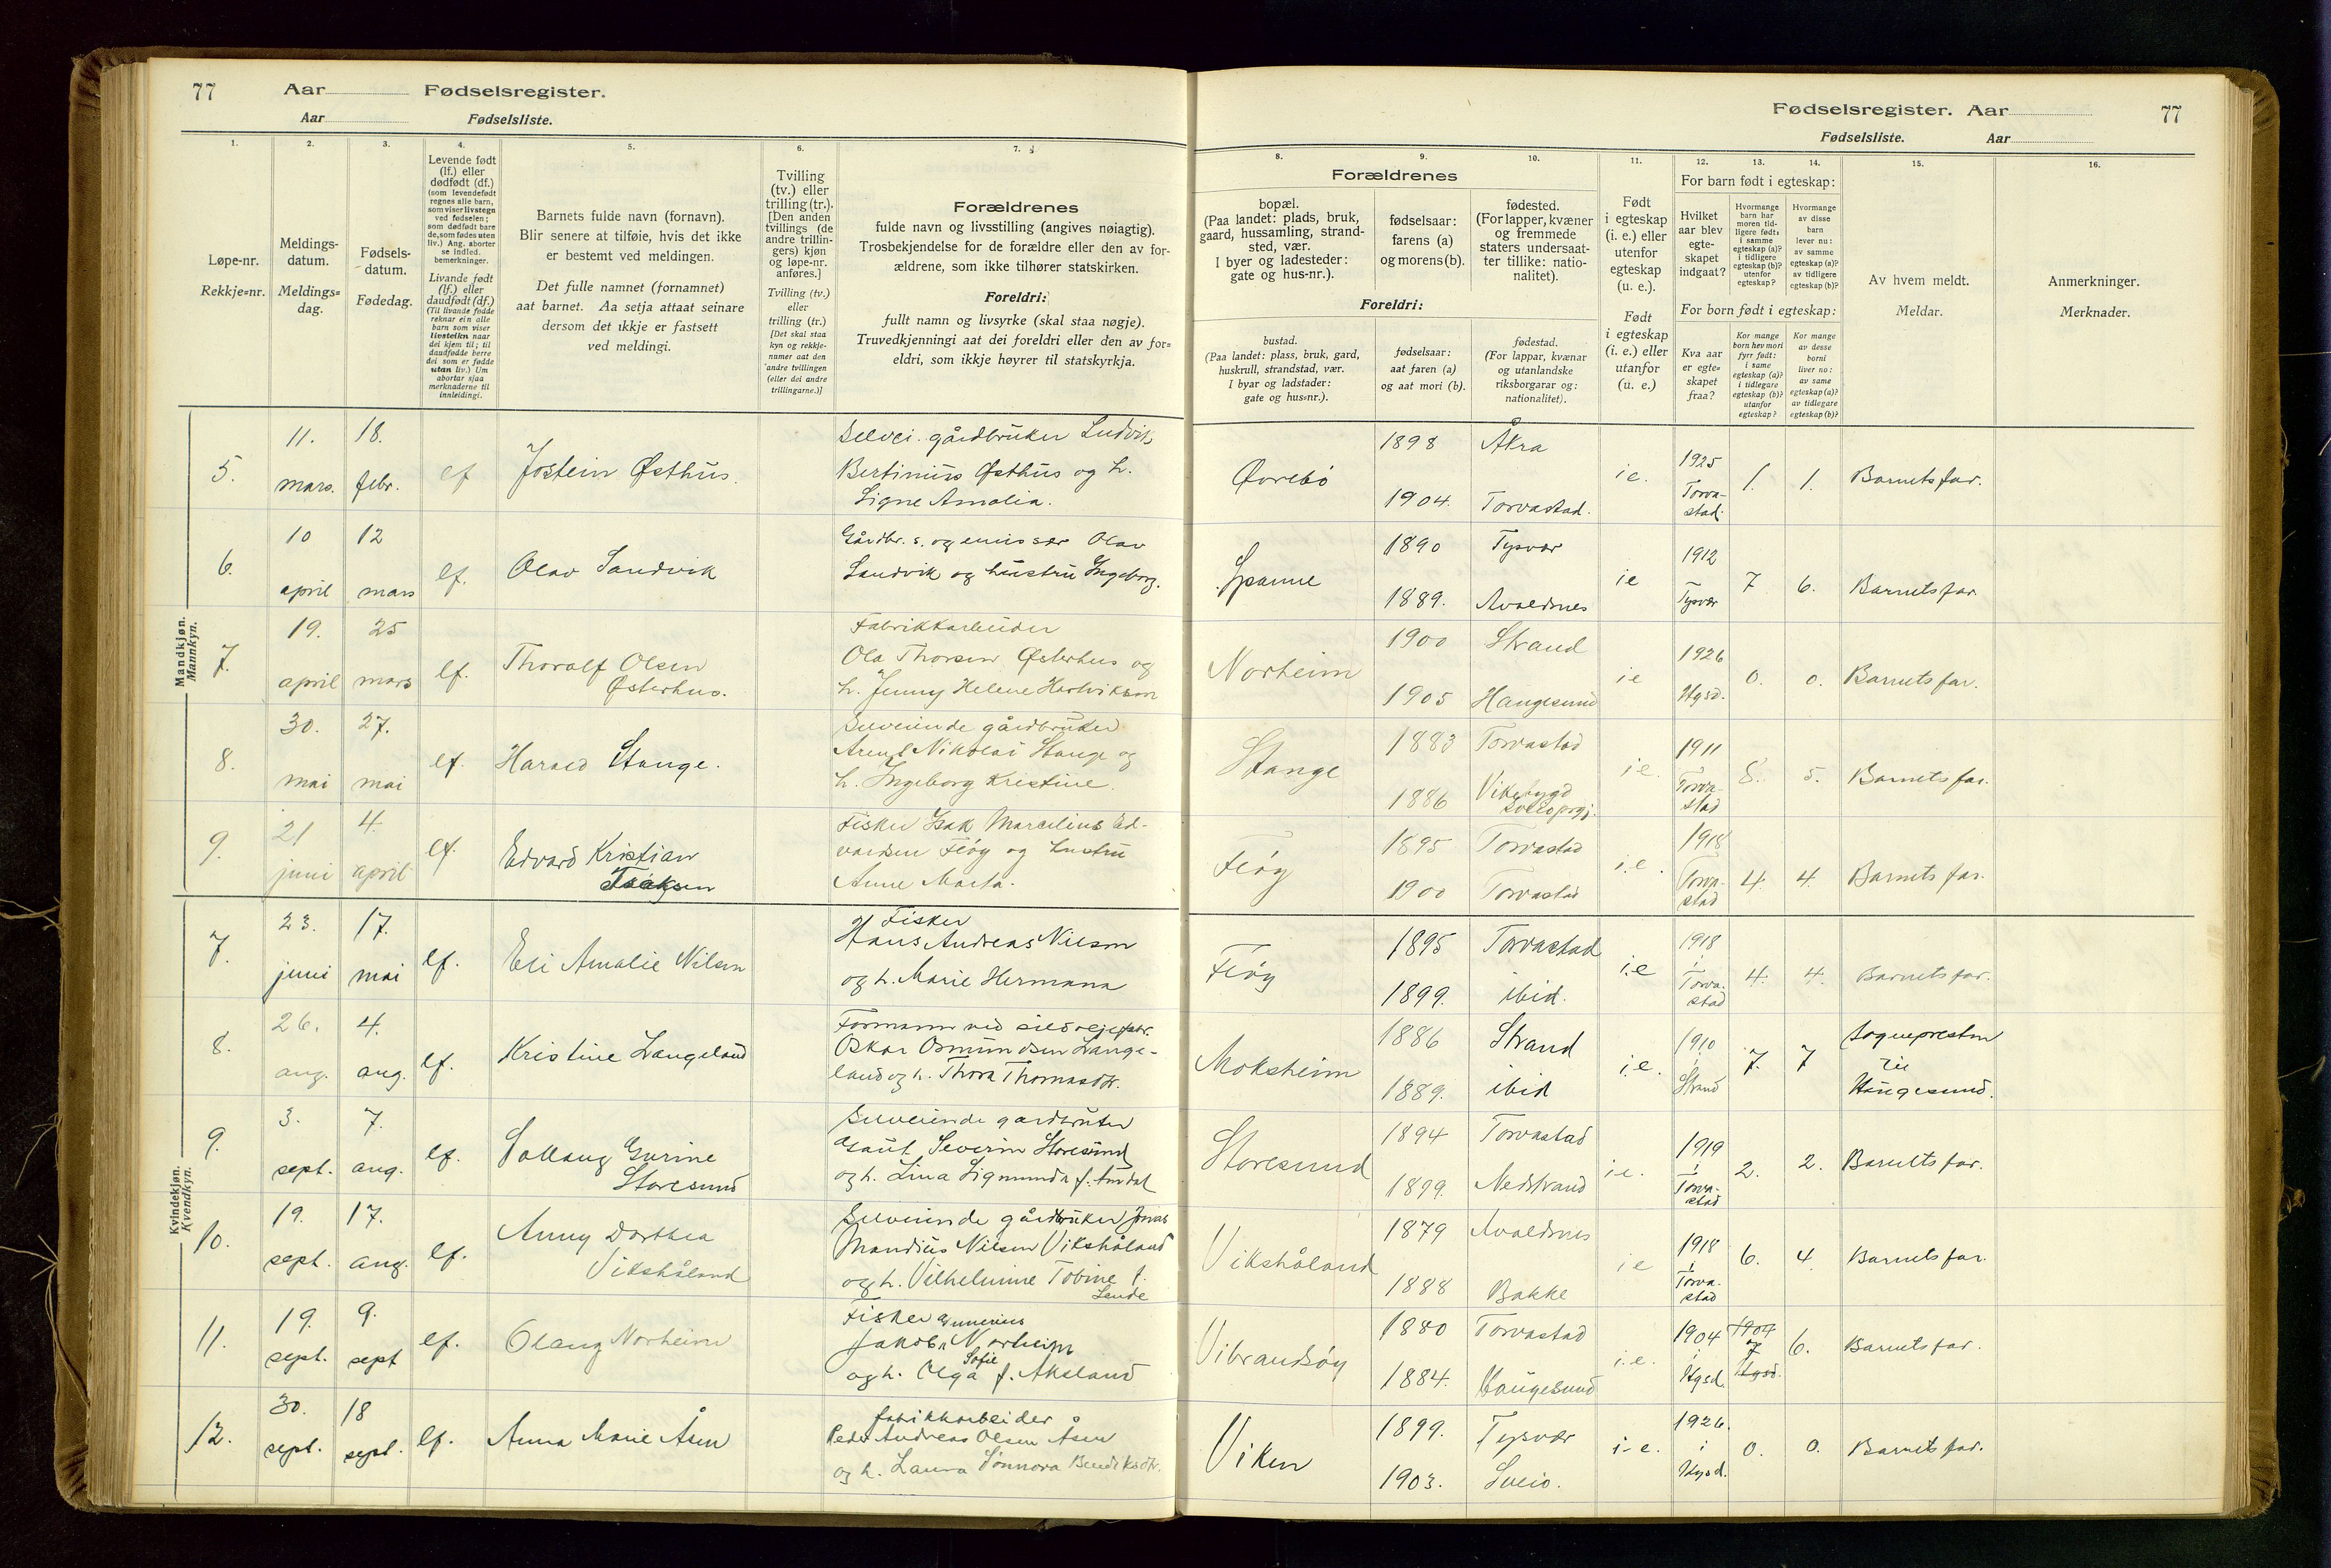 77 Aar Fødselsregister.
Aar Fødselsliste.
Fødselsregister. Aar 77
Fødselsliste. Aar
1.
Løpe-nr.
Rekkje=nr.
2.
Meldings-
datum.
Meldings=
dag.
3.
Fødsels-
datum.
Fødedag.
4.
Levende født
(lf.) eller
dødfødt (df.)
(som levendefødt
regnes alle barn,
som viser livstegn
ved fødselen;
som dødfødt bare
de, som fødes uten
liv.) Ang. aborter
se indled.
bemerkninger.
Livande født
(lf.) eller
daudfødt (df.)
(Til livande fødde
reknar ein alle
barn som viser
livsteikn naar
dei kjem til; til
daudfødde berre
dei som er fødde
utan liv.) Um
abortar sjaa
merknaderne til
innleidingi.
5.
Barnets fulde navn (fornavn).
Blir senere at tilføie, hvis det ikke
er bestemt ved meldingen.
Det fulle namnet (fornamnet)
aat barnet. Aa setja attaat seinare
dersom det ikkje er fastsett
ved meldingi.
6.
Tvilling
(tv.) eller
trilling (tr.).
[Den anden
tvillings (de
andre trillin-
gers) kjøn
og løpe-nr.
anføres.]
Tvilling (tv.)
eller
trilling (tr.)
[Det skal staa
kyn og rekkje-
numer aat den
andre tvillingen
(eller dei andre
trillingarne.)]
7.
Forældrenes
fulde navn og livsstilling (angives nøiagtig).
Trosbekjendelse for de forældre eller den av for-
ældrene, som ikke tilhører statskirken.
Foreldri:
fullt namn og livsyrke (skal staa nøgje).
Truvedkjenningi aat dei foreldri eller den av for=
eldri, som ikkje høyrer til statskyrkja.
Forældrenes
8.
bopæl.
(Paa landet: plads, bruk,
gaard, hussamling, strand-
sted, vær.
I byer og ladesteder:
gate og hus-nr.).
9.
fødselsaar:
farens (a)
og morens (b).
10.
fødested.
(For lapper, kvæner
og fremmede
staters undersaat-
ter tillike: natio-
nalitet).
Foreldri:
bustad.
(Paa landet: plass, bruk, gard,
huskrull, strandstad, vær.
I byar og ladstader:
gate og hus=nr.).
fødselsaar:
aat faren (a)
og aat mori (b).
fødestad.
(For lappar, kvænar
og utanlandske
riksborgarar og:
nationalitet).
11.
Født
i egteskap
(i. e.) eller
utenfor
egteskap
(u. e.).
Født
i egteskap
(i. e.) eller
utanfor
(u. e.)
12. 13. 14.
For barn født i egteskap:
Hvilket
aar blev
egte-
skapet
indgaat?
Hvormange
barn har
moren tid-
ligere født:
i samme
egteskap (a)?
i tidligere
egteskap (b)?
utenfor
egteskap?
Hvormange
av disse
barn
lever nu:
av samme
egteskap (a)?
av tidligere
egteskap (b)?
For born født i egteskap:
Kva aar
er egte=
skapet
fraa?
Kor mange
born hev mori
fyrr født:
i same
egteskap (a)?
i tidlegare
egteskap (b)?
utanfor
egteskap?
Kor mange
av desse
borni
liver no:
av same
egteskap (a)?
av tidlegare
egteskap (b)?
15.
Av hvem meldt.
Meldar.
16.
Anmerkninger.
Merknader.
Mandkjøn.
Mannkyn.
5. 11. mars. 18. febr. lf Jostein Østhus.
Selvei. gårdbruker Ludvik
Bertinius Østhus og h.
Signe Amalia.
Øvrebø 1898 Åkra
1904. Torvastad.
i e. 1925 Torva-
stad. 1. 1. Barnets far.
6. 10 april 12 mars lf. Olav Sandvik
Gårdbr. s. og emissær Olav
Sandvik og hustru Ingeborg.
Spanne 1890 Tysvær
1889. Avaldsnes
i e 1912 Tysvær 7 6. Barnets far
7. 19. april 25 mars lf. Thoralf Olsen
Østerhus.
Fabrikkarbeider
Ola Thorsen Østerhus og
h. Jenny Helene Hartviksen
Norheim 1900 Strand
1905 Haugesund
i e 1926 Hgsd. 0. 0. Barnets far.
8. 30. mai 27. mai lf. Harald Stange.
Selveiende gårdbruker
Arent Nikolai Stange og
h. Ingeborg Kristine.
Stange 1883 Torvastad
1886 Vikebygd
i e. 1911 Torva-
stad 8. 5. Barnets far.
9. 21 juni 4. april lf. Edvard Kristian
Isaksen
Fisker Isak Marselius Ed-
vardsen Fløy og hustru
Anne Marta.
Fløy 1895 Torvastad
1900 Torvastad
i.e. 1918 Torva-
stad 4. 4. Barnets far.
Kvindekjøn.
Kvendkyn.
7. 23. juni 17. mai lf. Eli Amalie Nilsen
Fisker
Hans Andreas Nilsen
og h. Marie Hermana
Fløy 1895 Torvastad
1899. ibid.
i.e 1918 i Torva-
stad 4. 4. Barnets far.
8. 26. aug. 4. aug. lf. Kristine Langeland
Formann ved sildoljefabr.
Oskar Osmundsen Lange-
land og h. Thora Thomasdtr.
Moksheim 1886 Strand
1889. ibid
i.e. 1910 i Strand 7. 7 Sognepresten
til
Haugesund.
9. 3. sept. 7. aug. lf. Solaug Gurine
Storesund
Selveiende gardbruker
Gaut Severin Storesund
og h. Lina Sigmunda f. Årdal
Storesund 1894 Torvastad
1899. Nedstrand
i.e. 1919 i Torva-
stad 2. 2. Barnets far.
10. 19. sept. 17. aug. lf. Anny Dorthea
Vikshåland
Selveiende gårdbruker Jonas
Mandius Nilsen Vikshåland
og h. Vilhelmine Tobine f.
Lende
Vikshåland 1879 Avaldsnes
1888 Bakke
i e 1918 i Torva-
stad 6. 4. Barnets far.
11. 19. sept. 9. sept lf. Olaug Norheim
Fisker Gunerius
Jakob Norheim
og h. Olga Sofie f. Aksland
Vibrandsøy 1880 Torvastad
1884. Haugesund
i.e. 1904 i Hgsd. 1904 7 Hgsd. 6. Barnets far.
12. 30. sept. 18 sept. lf. Anna Marie Åsen
fabrikkarbeider
Peder Andreas Olsen Åsen
og h. Laura Sønnova Bendiksdtr.
Viken 1899. Tysvær
1903. Sveio.
i-e. 1926. i Hgsd. 0. 0. Barnets far.